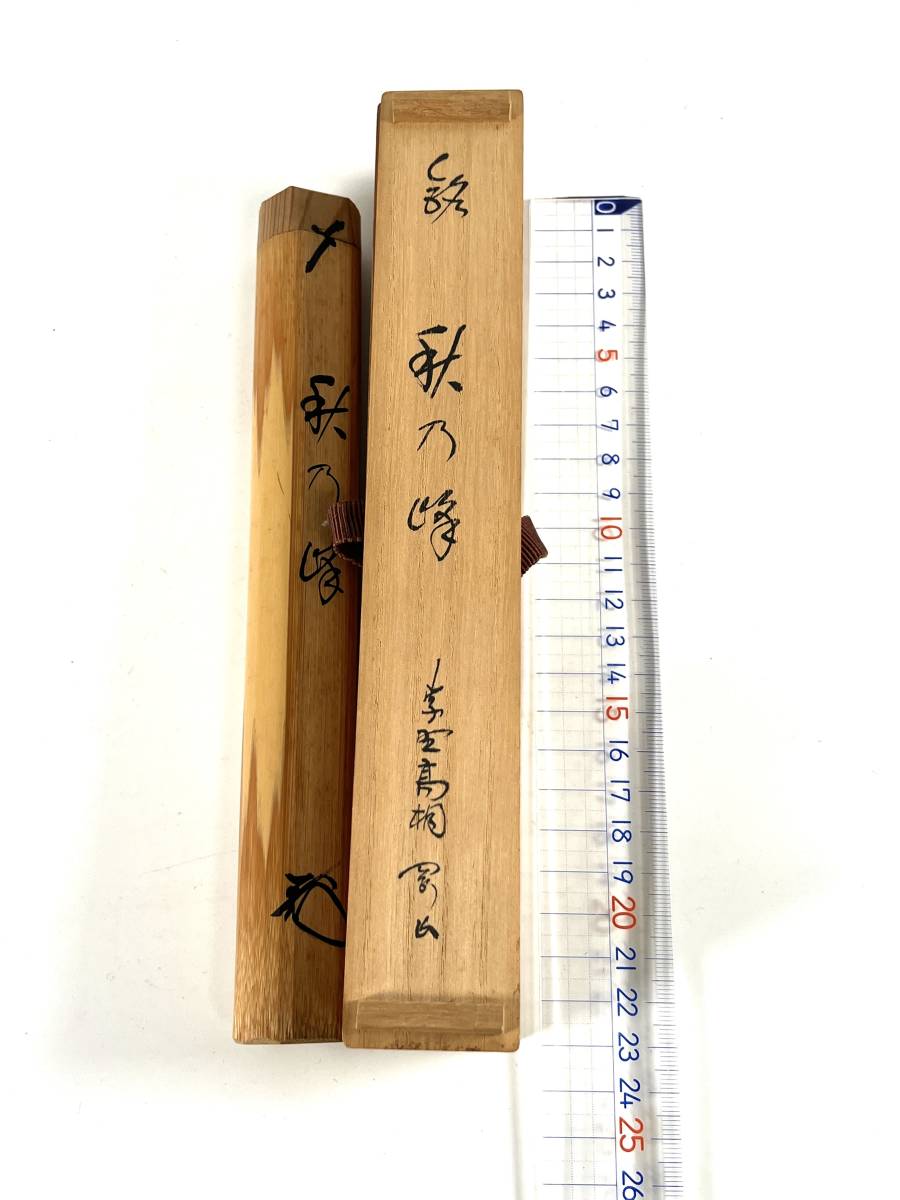 〆
秋乃峰
銘
秋乃峰
紫野高桐 剛山
0
1
2
3
4
5
6
7
8
9
10
11
12
13
14
15
16
17
18
19
20
21
22
23
24
25
26